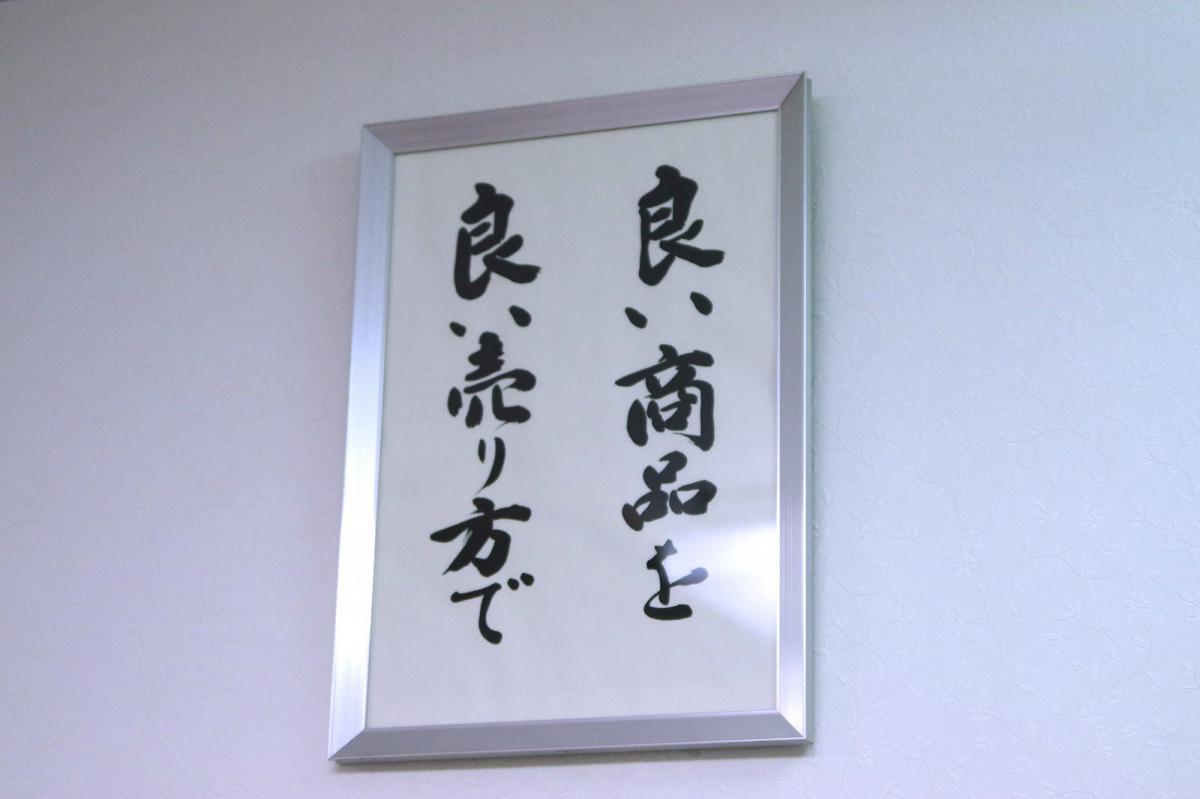 良い商品を
良い売り方で